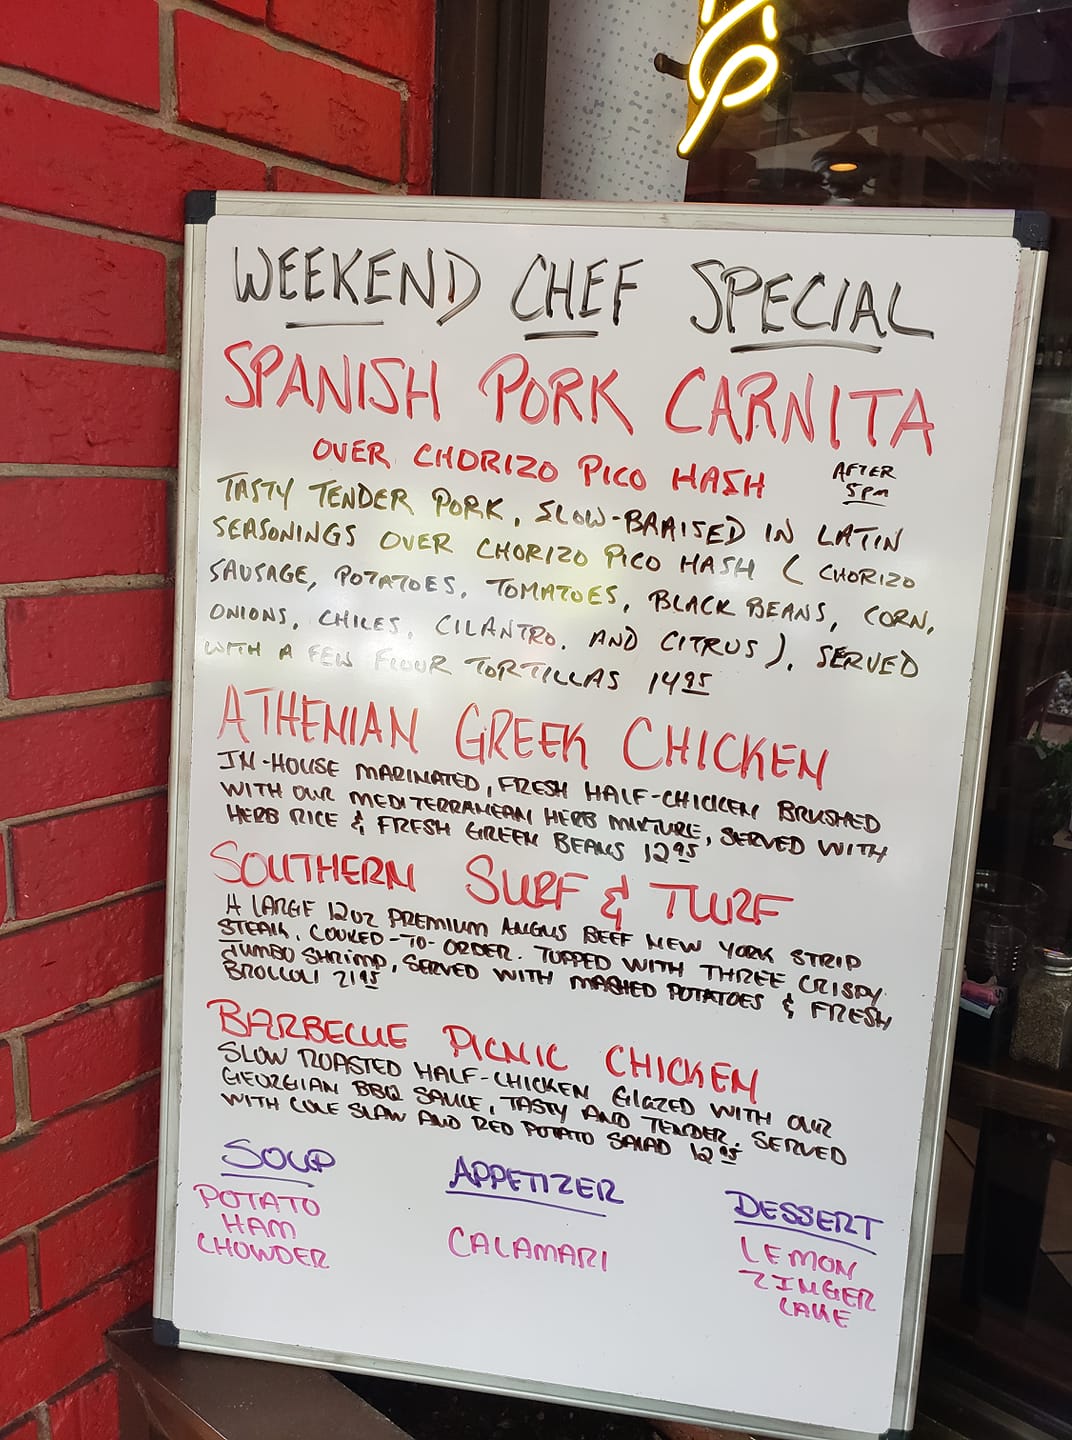 WEEKEND CHEF SPECIAL
SPANISH PORK CARNITA
OVER CHORIZO PICO HASH
AFTER
5pm
TASTY TENDER PORK, SLOW-BRAISED IN LATIN
SEASONINGS OVER CHORIZO PICO HASH ( CHORIZO
SAUSAGE, POTATOES, TOMATOES, BLACK BEANS, CORN,
ONIONS, CHILES, CILANTRO, AND CITRUS ), SERVED
WITH A FEW FLOUR TORTILLAS 14 95
ATHENIAN GREEK CHICKEN
IN-HOUSE MARINATED, FRESH HALF-CHICKEN BRUSHED
WITH OUR MEDITERRANEAN HERB MIXTURE, SERVED WITH
HERB RICE & FRESH GREEN BEANS 12 95
SOUTHERN SURF & TURF
A LARGE 12oz PREMIUM ANGUS BEEF NEW YORK STRIP
STEAK, COOKED-TO-ORDER. TOPPED WITH THREE CRISPY
JUMBO SHRIMP, SERVED WITH MASHED POTATOES & FRESH
BROCCOLI 21 95
BARBECUE PICNIC CHICKEN
SLOW ROASTED HALF-CHICKEN GLAZED WITH OUR
GEORGIAN BBQ SAUCE, TASTY AND TENDER. SERVED
WITH COLE SLAW AND RED POTATO SALAD 12 95
SOUP
POTATO
HAM
CHOWDER
APPETIZER
CALAMARI
DESSERT
LEMON
ZINGER
CAKE